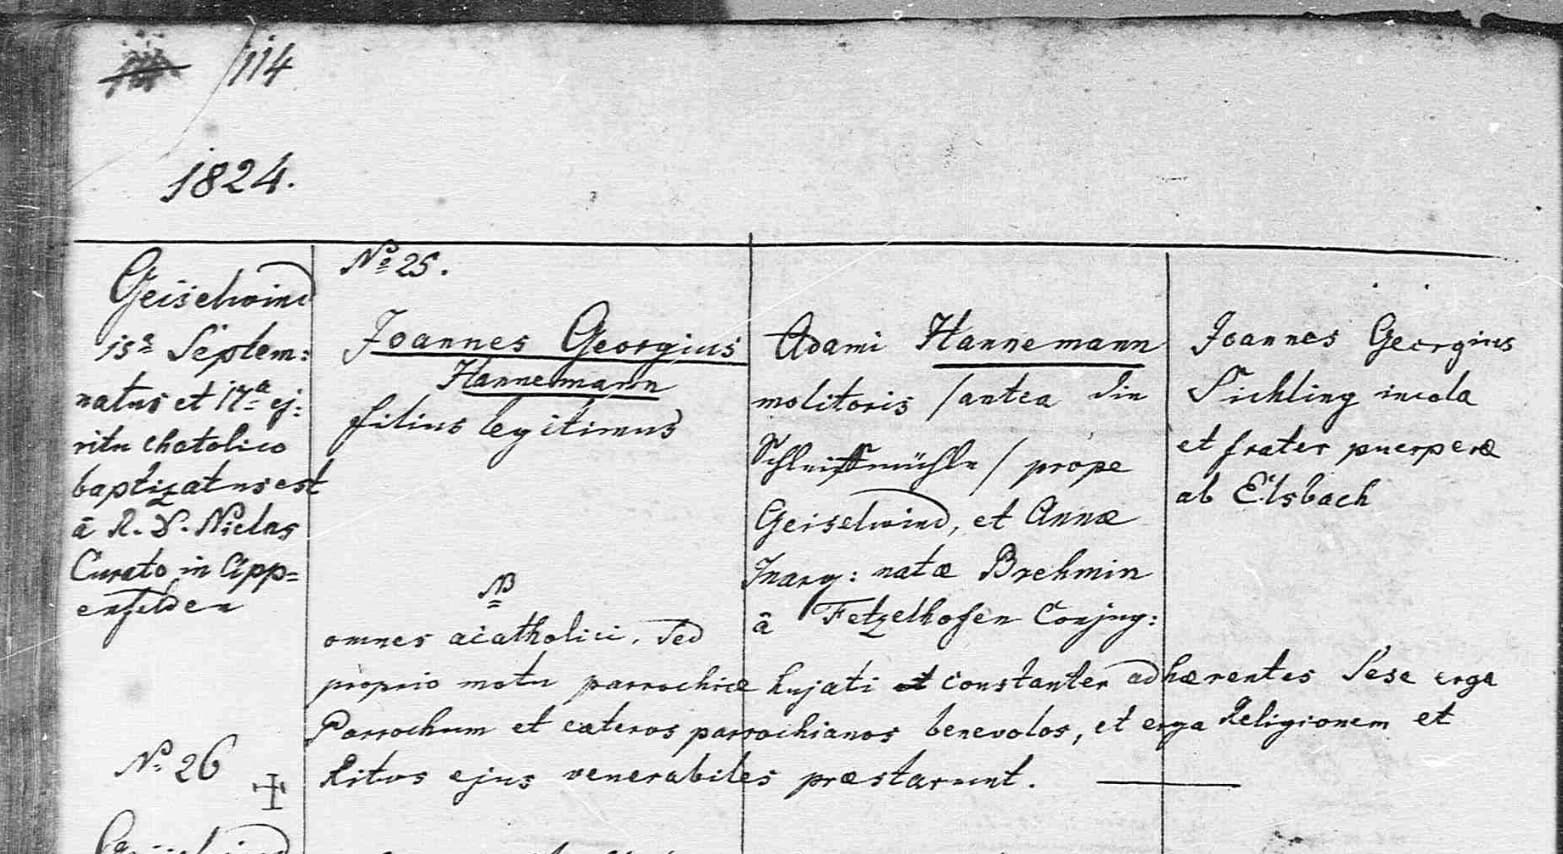 114
1824.
Geiselwind
15ª Septem:
natus et 17ª ej:
ritu chatolico
baptizatus est
â R. D. Niclas
Curato in App=
enfelden
No 25.
Joannes Georgius
Hannemann
filius legitimus
Adami Hannemann
molitoris /antea din
Schleiffmühle/ prope
Geiselwind, et Annæ
Marg: natæ Brehmin
â Fetzelhofen Conjug:
Joannes Georgius
Sichling incola
et frater puerperæ
ab Elsbach
NB
omnes acatholici, sed
proprio motu parrochiæ hujati et constanter adhærentes sese erga
Parrochum et cæteros parrochianos benevolos, et erga Religionem et
Ritus ejus venerabiles præstarunt.
No 26
Geiselwind